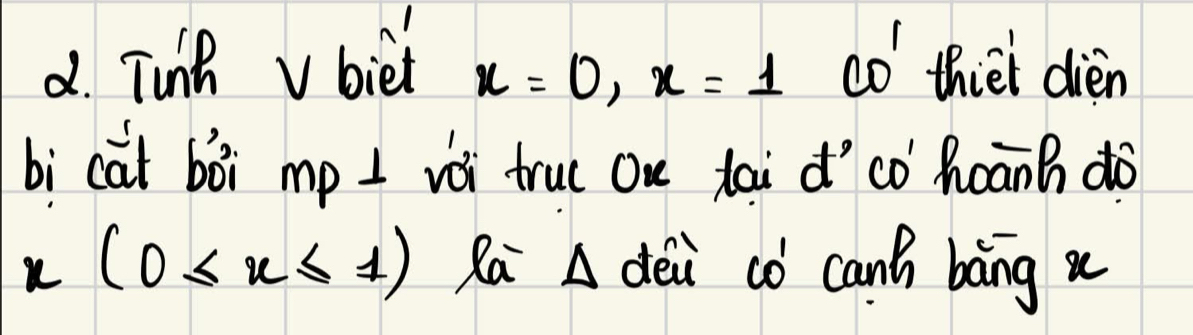 2. Tính V biết x = 0, x = 1 có thiết diện
bị cắt bởi mp ⊥ với trục Ox tại đ' có hoành độ
x (0 ≤ x ≤ 1) là Δ đều có cạnh bằng x